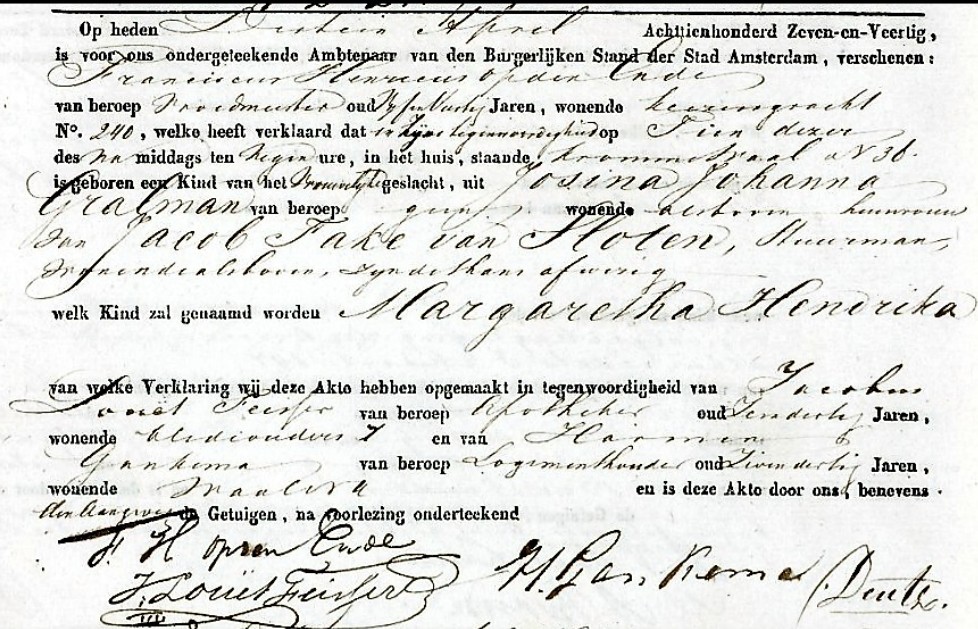 Op heden Dertien April Achttienhonderd Zeven-en-Veertig,
is voor ons ondergeteekende Ambtenaar van den Burgerlijken Stand der Stad Amsterdam, verschenen:
Franciscus Henricus op den Ende
van beroep Vroedmeester oud Jaren, wonende Keizersgracht
N°. 240, welke heeft verklaard dat in zijne tegenwoordigheid op Tien dezer
des na middags ten Negen ure, in het huis, staande Krommestraat N 36.
is geboren een Kind van het Vrouwelijk geslacht, uit Josina Johanna
Grafman van beroep geen wonende als boven huisvrouw
van Jacob Take van Sloten, Stuurman,
wonende als boven, zynde thans afwezig
welk Kind zal genaamd worden Margaretha Hendrika
van welke Verklaring wij deze Akte hebben opgemaakt in tegenwoordigheid van Jacobus
Louet Feisser van beroep Apotheker oud Jaren,
wonende 7 en van Harmen
Gankema van beroep Logementhouder oud Jaren,
wonende en is deze Akte door ons, benevens
den Aangever de Getuigen, na voorlezing onderteekend
F H op den Ende
J. Louët Feisser H. Gankema Deutz.